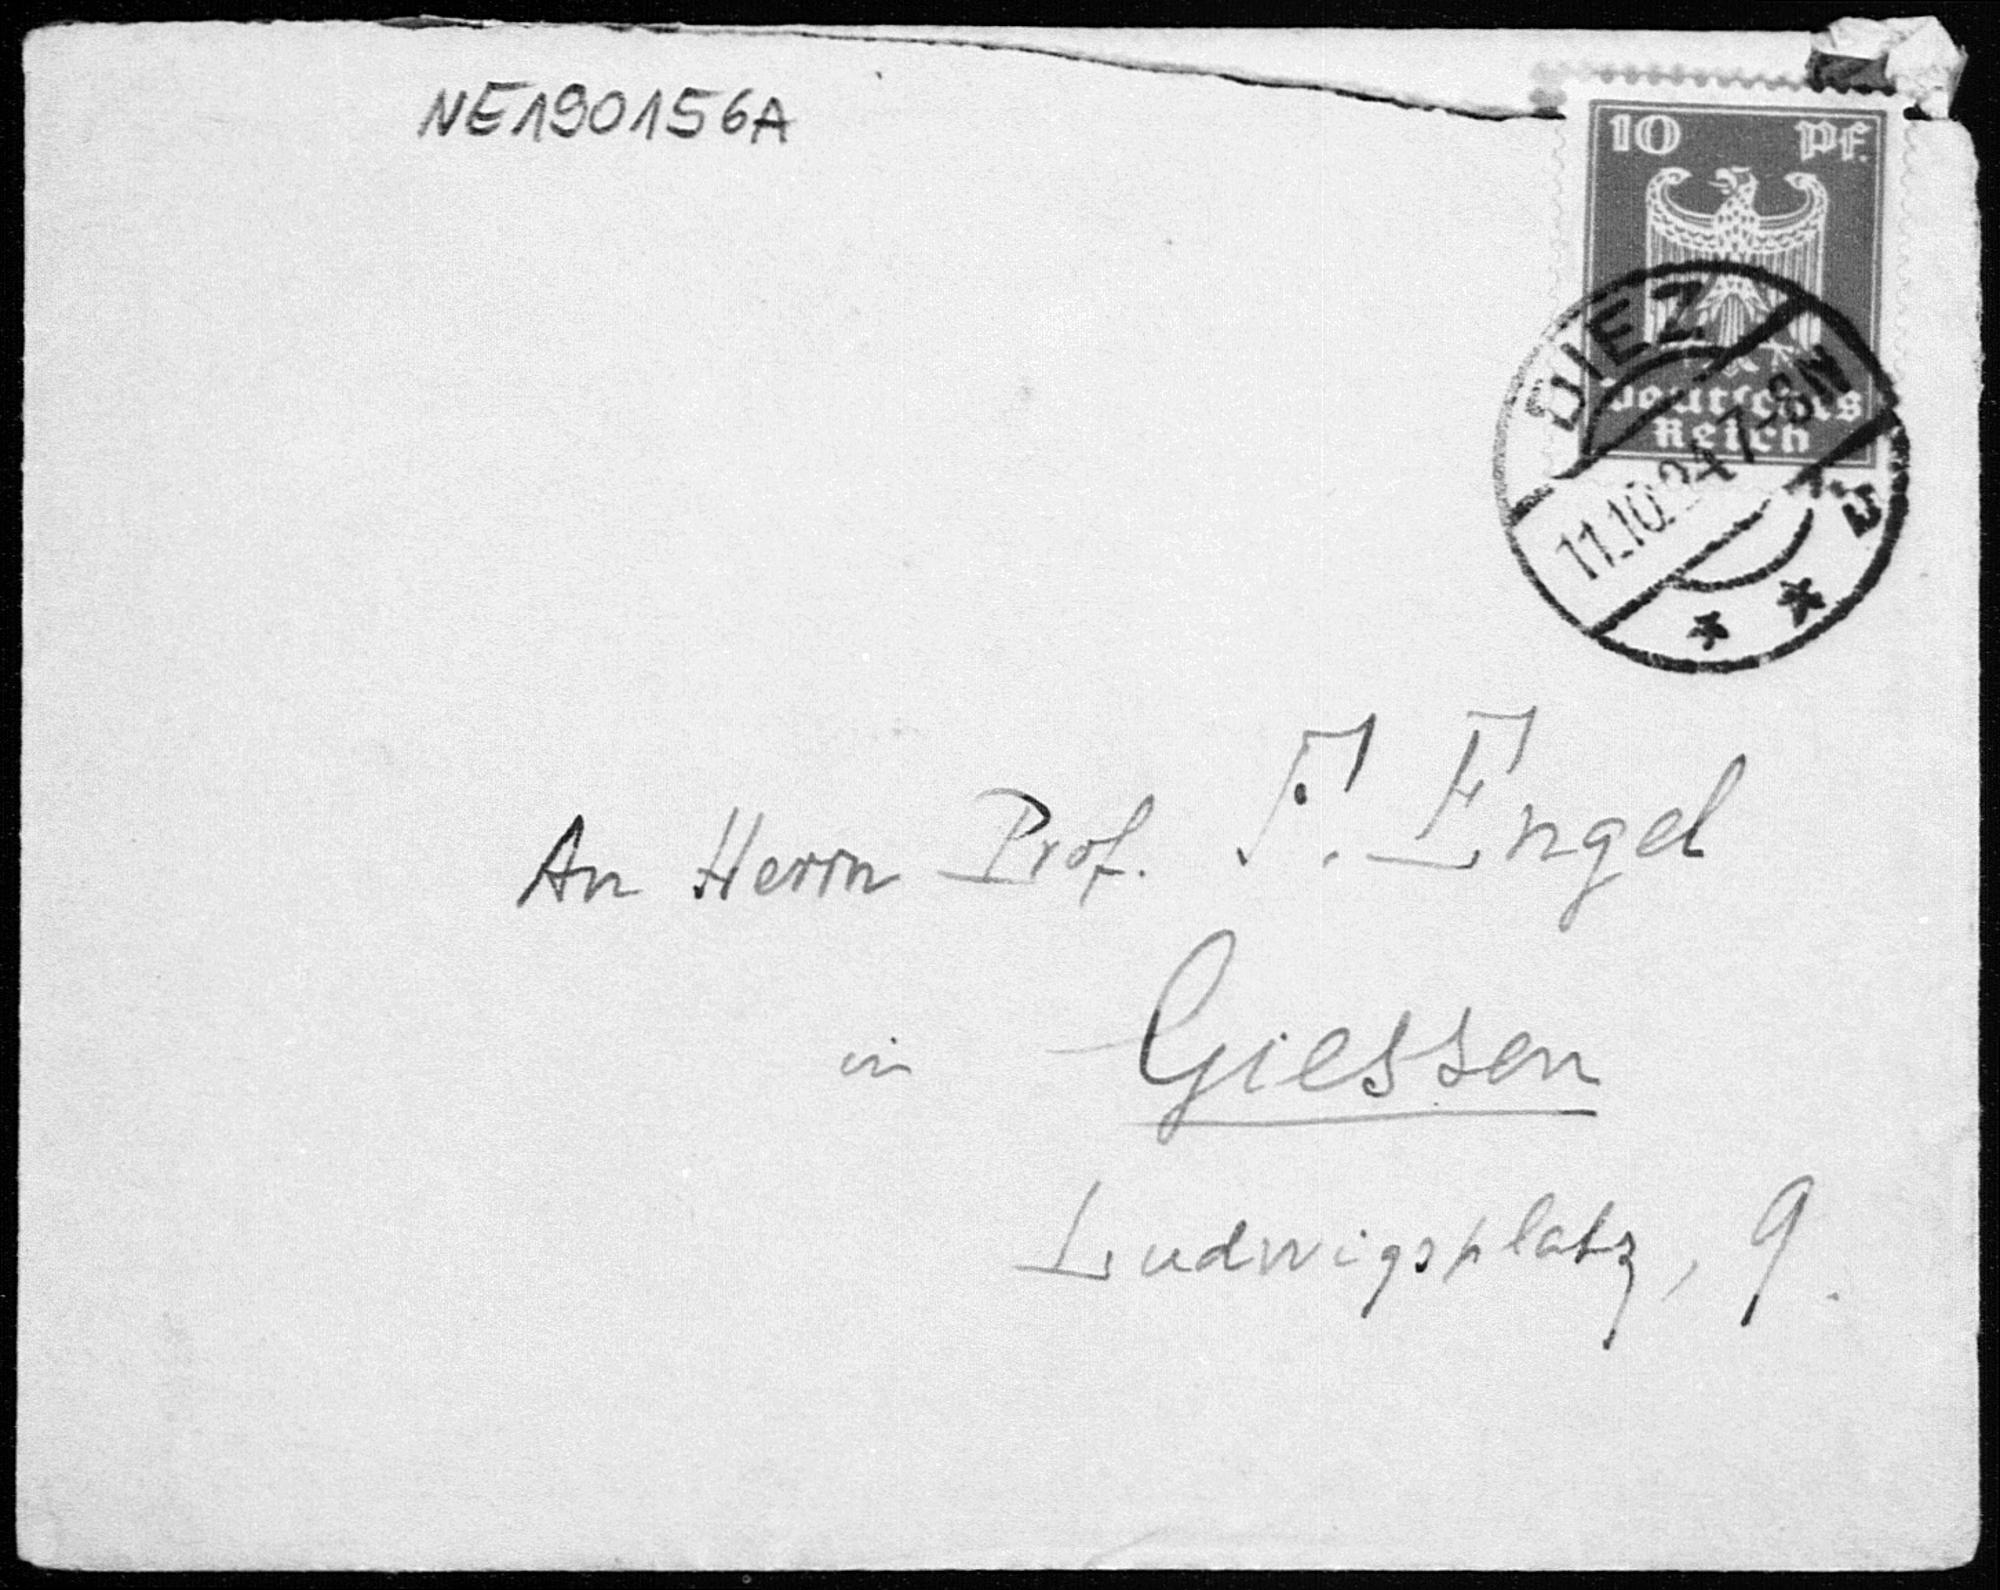 NE190156A
10 Pf.
Deutsches
Reich
DIEZ
11.10.24 7-8N
An Herrn Prof. F. Engel
in Giessen
Ludwigsplatz, 9.